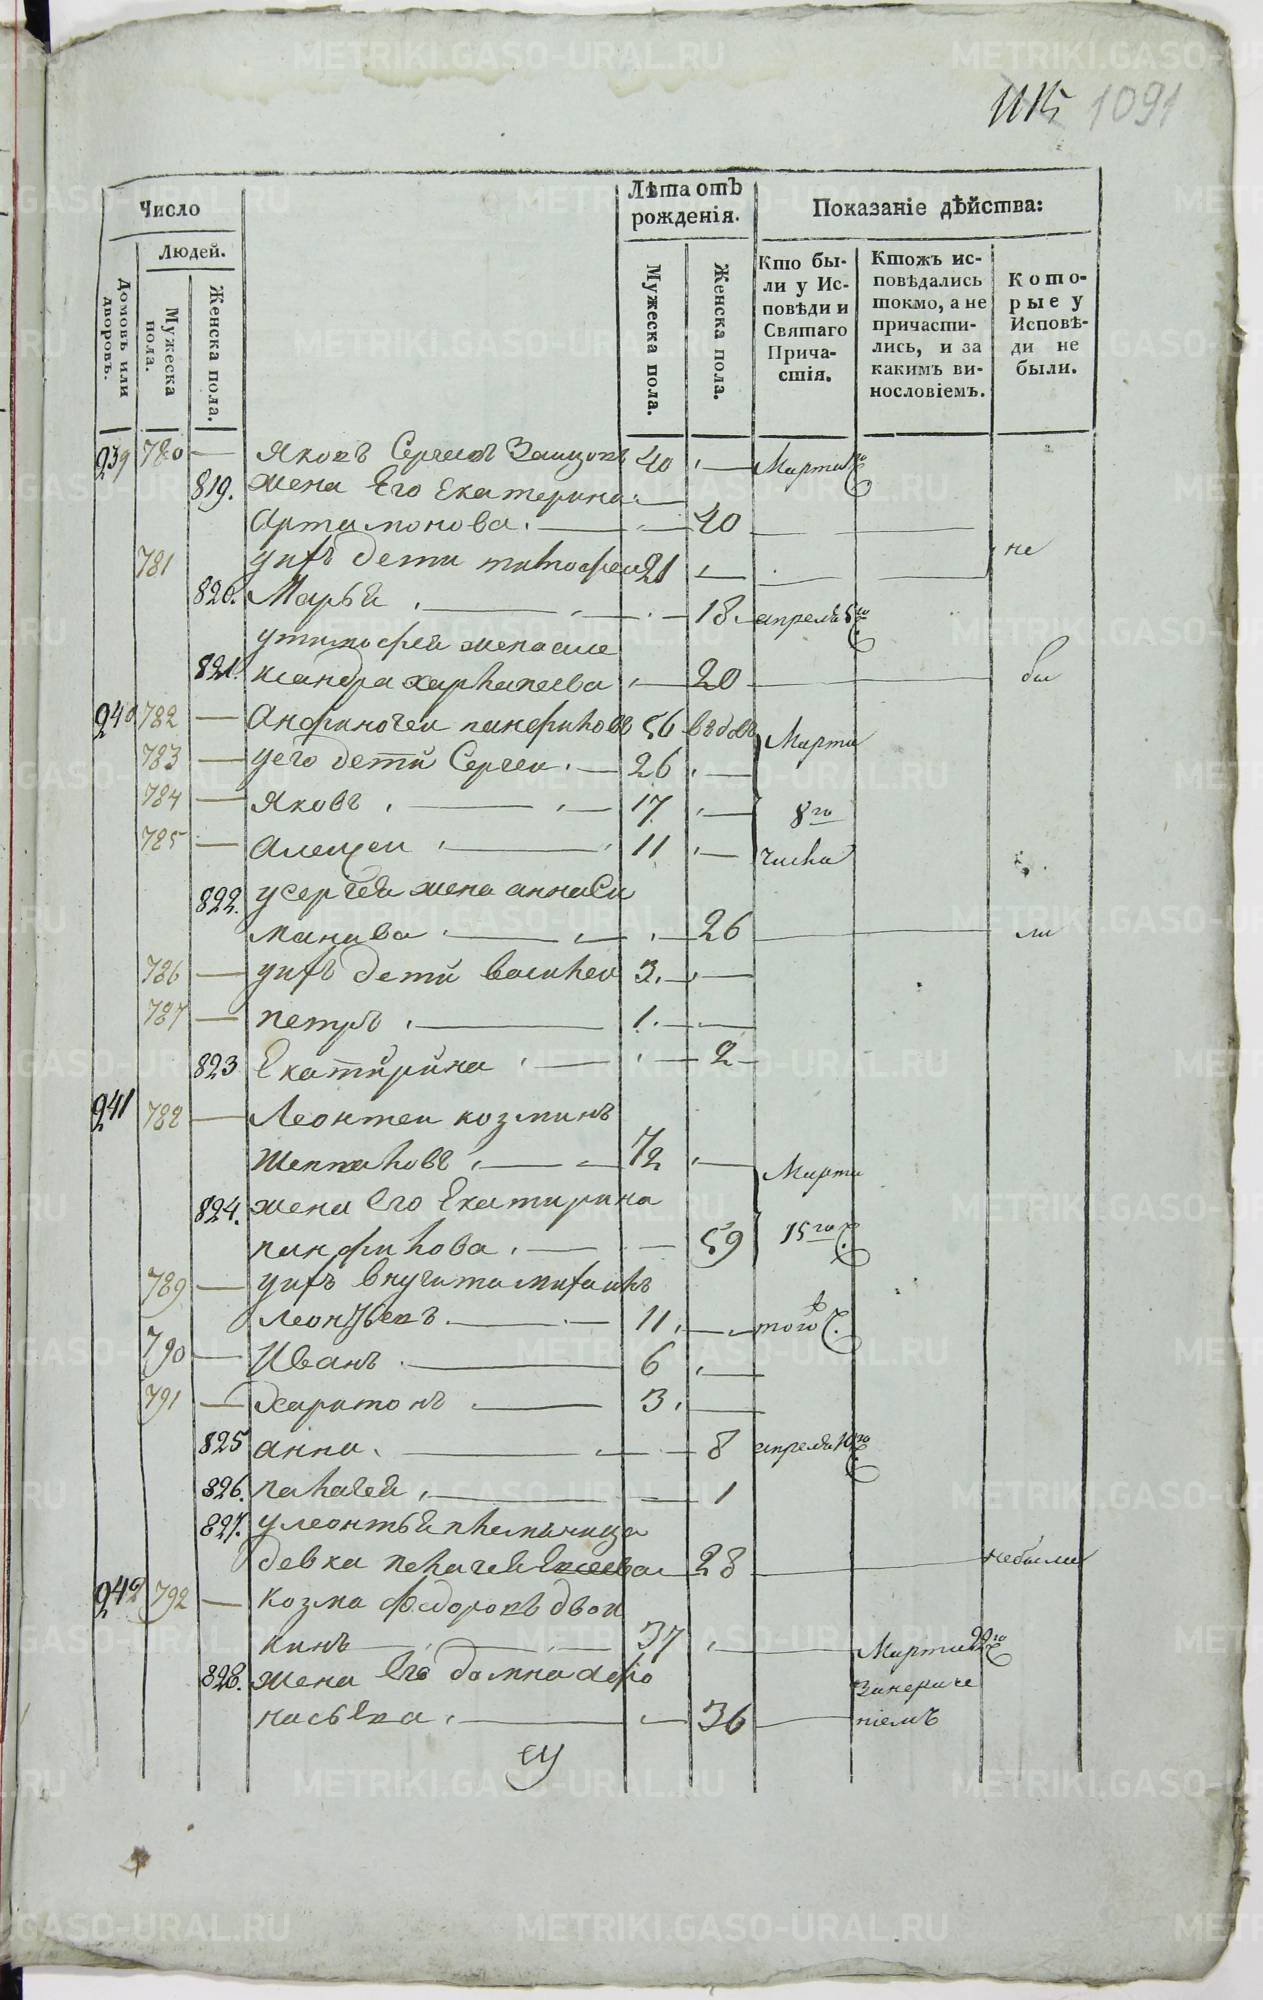 1091
Число
Лѣта отъ рожденія.
Показаніе дѣйства:
Людей.
Домовъ или дворовъ.
Мужеска пола.
Женска пола.
Мужеска пола.
Женска пола.
Кто были у Исповѣди и Святаго Причастія.
Ктожъ исповѣдались токмо, а не причастились, и за какимъ винословіемъ.
Которые у Исповѣди не были.
239 780 — Яковъ Сергеевъ 40 — Марта
819. жена Его Екатерина
Артамонова. — 40
781 ихъ дети тимофеи 21 — не
820. Марья — 18 апреля 5го
утимофея жена але
821. ксандра 20 — бы
240 782 — Анфиногеи панфиловъ 56 вѣдовъ Марта
783 — уего дети Сергеи. — 26 —
784 — Яковъ — 17 — 8го
785 — Алешеи — 11 — числа
822. усергея жена анна Си
манава — 26 — ли
786 — уихъ дети василеи 3. —
787 — петръ — 1. —
823 Екатирина — 2
241 788 — Леонтеи козминъ
72 — Марта
824. жена Его Екатирина
панфилова — 59 15го
789 — уихъ внучита михаилъ
леонтьевъ — 11. — того
790 — Иванъ — 6 —
791 — харитонъ — 3. —
825 анна — 8 апреля 10го
826. палагея — 1
827. улеонтья племяница
девка пелагея — 28 — небыли
242 792 — козма федоровъ двои
кинъ — 37 — Марта
828. жена Его домна афо
насьева — 36 —